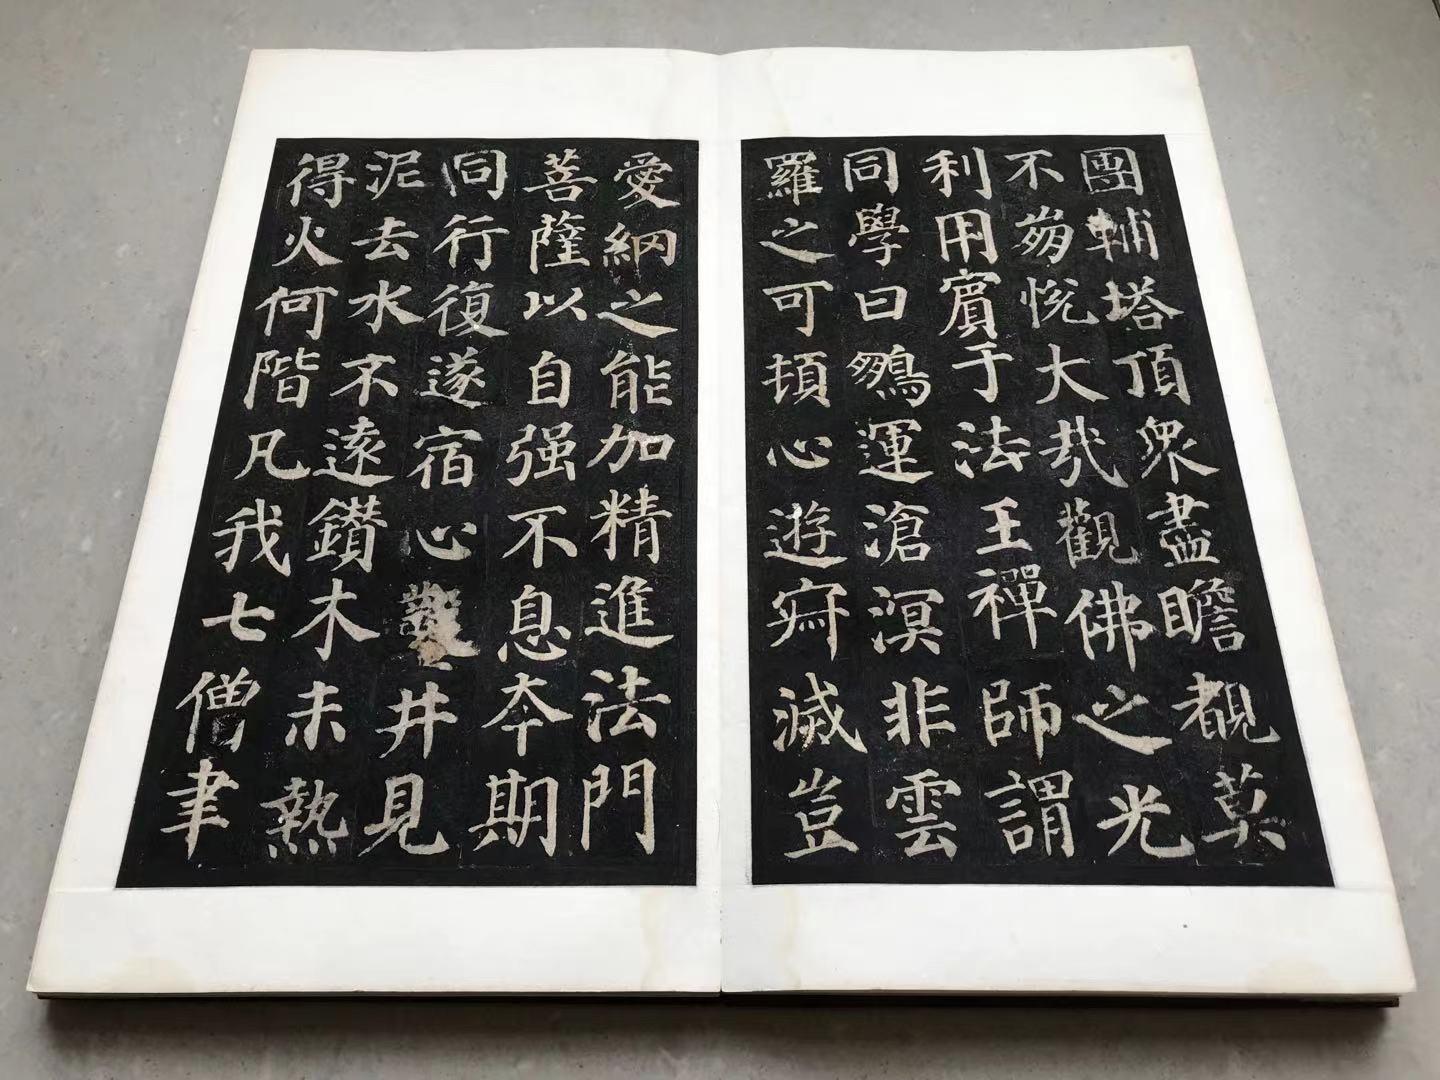 團輔塔頂衆盡瞻覩莫
不崩悅大哉觀佛之光
利用賓于法王禪師謂
同學曰鵬運滄溟非雲
羅之可頓心遊寂滅豈
愛網之能加精進法門
菩薩以自强不息本期
同行復遂宿心鑿井見
泥去水不遠鑽木未熱
得火何階凡我七僧聿